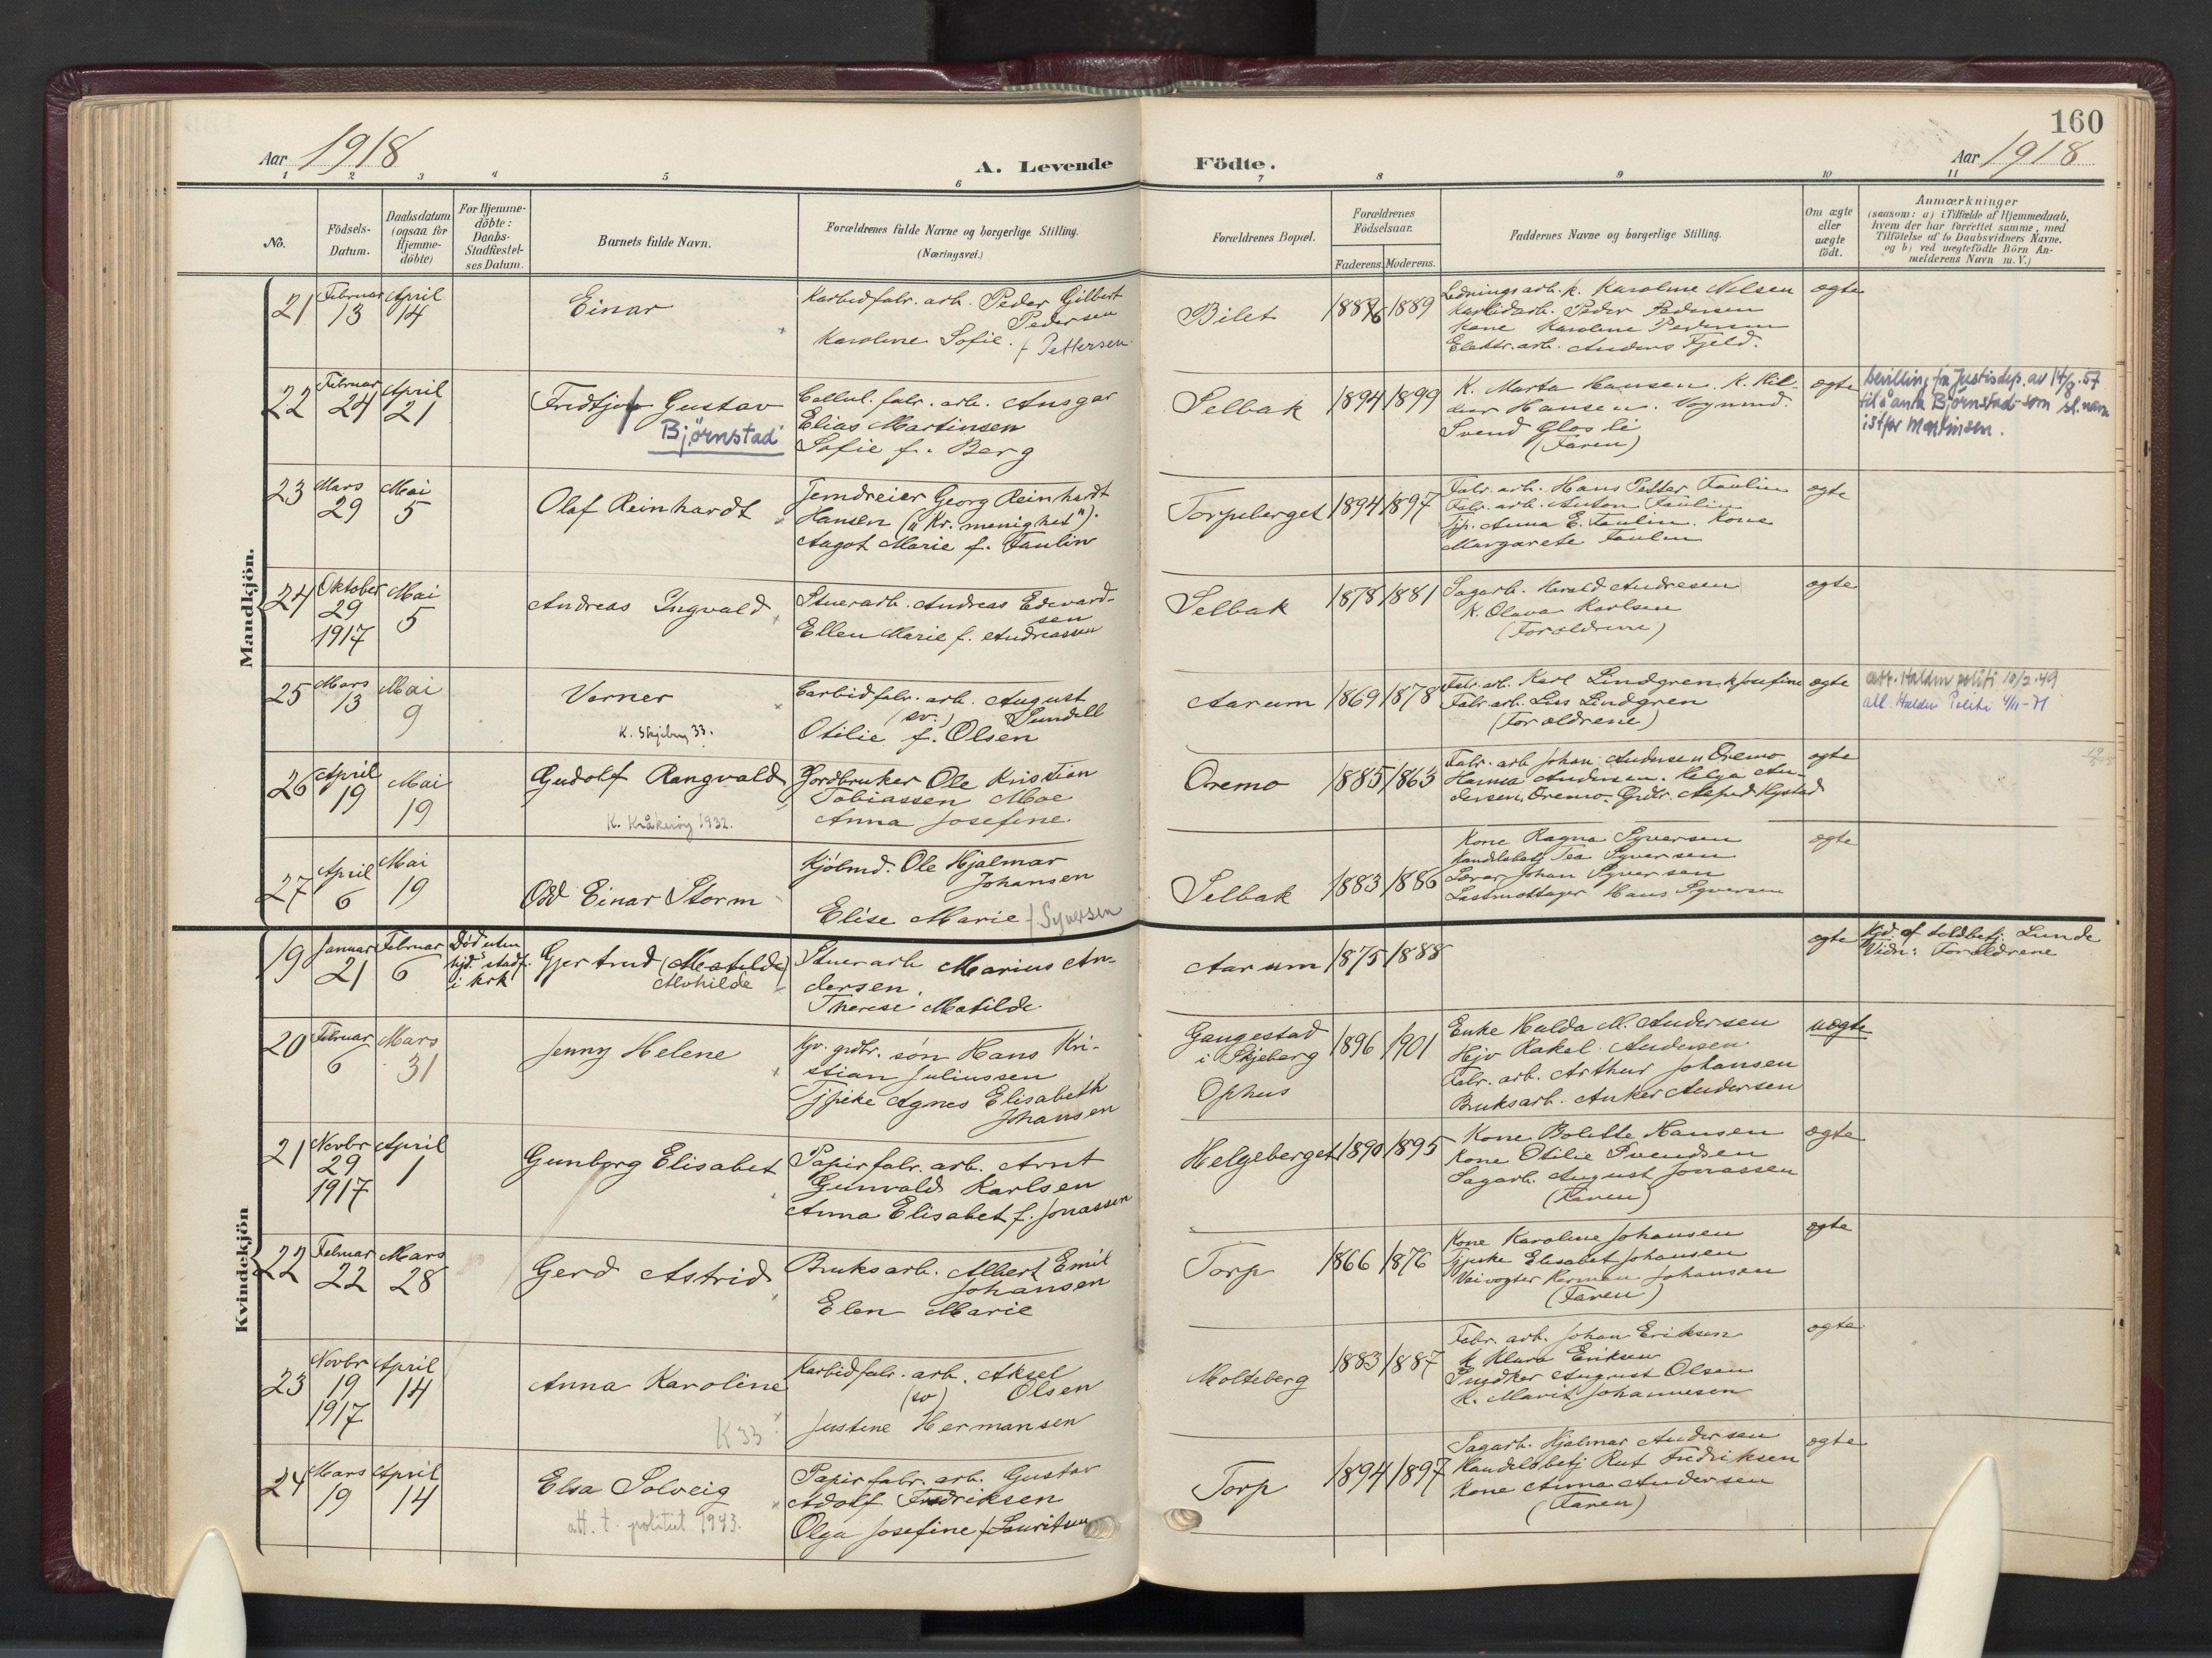 160
Aar 1918
A. Levende
Födte.
Aar 1918
1 2 3 4 5 6 7 8 9 10 11
No.
Födsels-
Datum.
Daabsdatum
(ogsaa for
Hjemme-
döbte)
For Hjemme-
döbte:
Daabs-
Stadfæstel-
ses Datum.
Barnets fulde Navn.
Forældrenes fulde Navne og borgerlige Stilling.
(Næringsvei.)
Forældrenes Bopæl.
Forældrenes
Födselsaar.
Faderens. Moderens.
Faddernes Navne og borgerlige Stilling.
Om ægte
eller
uægte
födt.
Anmærkninger
(saasom: a) i Tilfælde af Hjemmedaab,
hvem der har forrettet samme, med
Tilföielse af to Daabsvidners Navne.
og b) ved uegtefödte Börn An-
melderens Navn m. V.)
Mandkjön.
21
Februar
13
April
14
Einar
Karbidfabr. arb. Peder Gilbert
Pedersen
Karoline Sofie. f. Pettersen.
Bilet
1889
Ledningsarb. k. Karoline Nilsen
Karbidarb. Peder Pedersen
Kone Karoline Pedersen
Elektr. arb. Anders Fjeld.
ægte
22
Februar
24
April
21
Fredtjov Gustav
Björnstad
Cellul. fabr. arb. Ansgar
Elias Martinsen
Sofie f. Berg
Selbak
1894 1899
K. Marta Hansen. K. Hil-
dur Hansen.
Svend
(Faren)
ægte
bevilling fra Justisdep. av 14/8.57
til å anta Björnstad som sl.navn
istfor Martinsen.
23
Mars
29
Mai
5
Olaf Reinhardt
Jerndreier Georg Reinhardt
Hansen ("Kr. menighet").
Aagot Marie f. Faulin
Torpeberget
1894 1897
Fabr. arb. Hans Petter Faulin
Fabr. arb. Anton Faulin
Tjp. Anna E. Faulin. Kone
Margarete Faulin
ægte
24
Oktober
29
1917
Mai
5
Andreas Ingvald
Stuerarb. Andreas Edvard-
sen
Ellen Marie f. Andreassen
Selbak
1878 1881
Sagarb. Harald Andresen
K. Olava Karlsen
(Forældrene)
ægte
25
Mars
13
Mai
9
Verner
K. Skjeberg 33.
Carbidfabr. arb. August
(sv.) Sundell
Otilie f. Olsen
Aarum
1869 1878
Fabr. arb. Karl Lindgren, k. Josefine
Fabr. arb. Lindgren
(Forældrene)
ægte
att. Halden politi 10/2.49
att. Halden Politi 4/11-71
26
April
19
Mai
19
Gudolf Rangvald
K. Kråkeröy 1932.
Jordbruker Ole Kristian
Tobiassen Moe
Anna Josefine.
Oremo
1885 1863
Fabr. arb. Johan Andersen Oremo
Hanna Andersen. Helga An-
dersen, Oremo. Grdbr. Nystad
ægte
27
April
6
Mai
19
Odd Einar Storm
Kjölmd. Ole Hjalmar
Johansen
Elise Marie f. Syversen
Selbak
1883 1886
Kone Ragna Syversen
Handelsbetj Tea Syversen
Lærer Johan Syversen
Lastmottager Hans Syversen
ægte
Kvindekjön
19
Januar
21
Februar
6
Död uten
stadf.
i kirk
Gjertrud (Matilde)
Alvhilde
Stuerarb Marius An-
dersen.
Therese Matilde
Aarum
1875 1888
ægte
Hjd. af toldbetj. Lunde
Vidn: Forældrene
20
Februar
6
Mars
31
Jenny Helene
Gjv. grdbr. sön Hans Kri-
stian Juliussen
Tjpike Agnes Elisabeth
Johansen
Gangestad
i Skjeberg
Ophus
1896 1901
Enke Hulda M. Andersen
Hjv Rakel Andersen
Fabr. arb. Arthur Johansen
Bruksarb. Anker Andersen
uægte
21
Novbr
29
1917
April
1
Gunborg Elisabet
Papirfabr. arb. Arnt
Gunvald Karlsen
Anna Elisabet f. Jonassen
Helgeberget
1890 1895
Kone Bolette Hansen
Kone Otilie Svendsen
Sagarb. August Jonassen
(Faren)
ægte
22
Februar
22
Mars
28
Gerd Astrid
Bruksarb. Albert Emil
Johansen
Elen Marie
Torp
1866 1876
Kone Karoline Johansen
Tjpike Elisabet Johansen
Veivogter Herman Johansen
(Faren)
ægte
23
Novbr
19
1917
April
14
Anna Karoline
K 33
Karbidfabr. arb. Aksel
(sv) Olsen
Justine Hermansen
Molteberg
1883 1887
Fabr. arb. Johan Eriksen
K Klara Eriksen
Snedker August Olsen
K. Marit Johannesen
ægte
24
Mars
19
April
14
Elsa Solveig
att. t. politiet 1943.
Papirfabr. arb. Gustav
Adolf Fredriksen
Olga Josefine f Lauritsen
Torp
1894 1897
Sagarb. Hjalmar Andersen
Handelsbetj Rut Fredriksen
Kone Anna Andersen
(Faren)
ægte